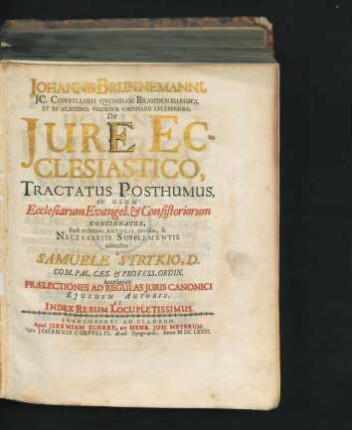 JOHANNIS BRUNNEMANNI,
JC. CONSILIARII QVONDAM BRANDENBURGICI,
ET IN ACADEMIA VIADRINA ORDINARII CELEBERRIMI,
DE
JURE EC-
CLESIASTICO,
TRACTATUS POSTHUMUS,
IN USUM
Ecclesiarum Evangel. & Consistoriorum
CONCINNATUS,
NECESSARIIS SUPPLEMENTIS
à
SAMUELE STRYKIO, D.
COM. PAL. CÆS. & PROFESS. ORDIN.
PRÆLECTIONES AD REGULAS JURIS CANONICI
EJUSDEM AUTORIS,
ET
INDEX RERUM LOCUPLETISSIMUS.
FRANCOFURTI AD VIADRUM
Apud JEREMIAM SCHREY, ET HENR. JOH. MEYERUM
Typis JOHANNIS COEPSELII, Acad. Typographi, Anno M DC LXXXI.